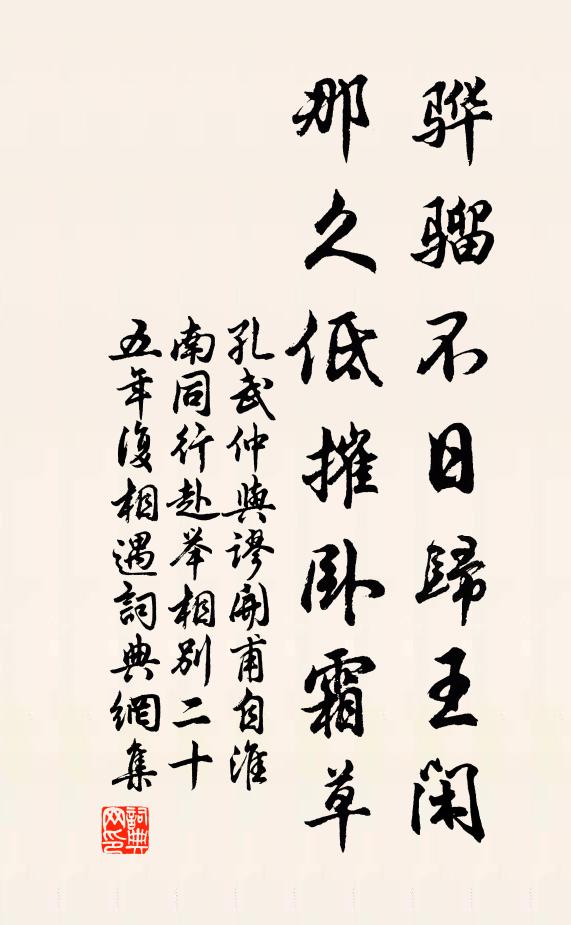 骅骝不日歸王閑
那久低摧卧霜草
孔武仲與謬開甫自淮
南同行赴举相别二十
五年復相遇詞典網集
詞典网印